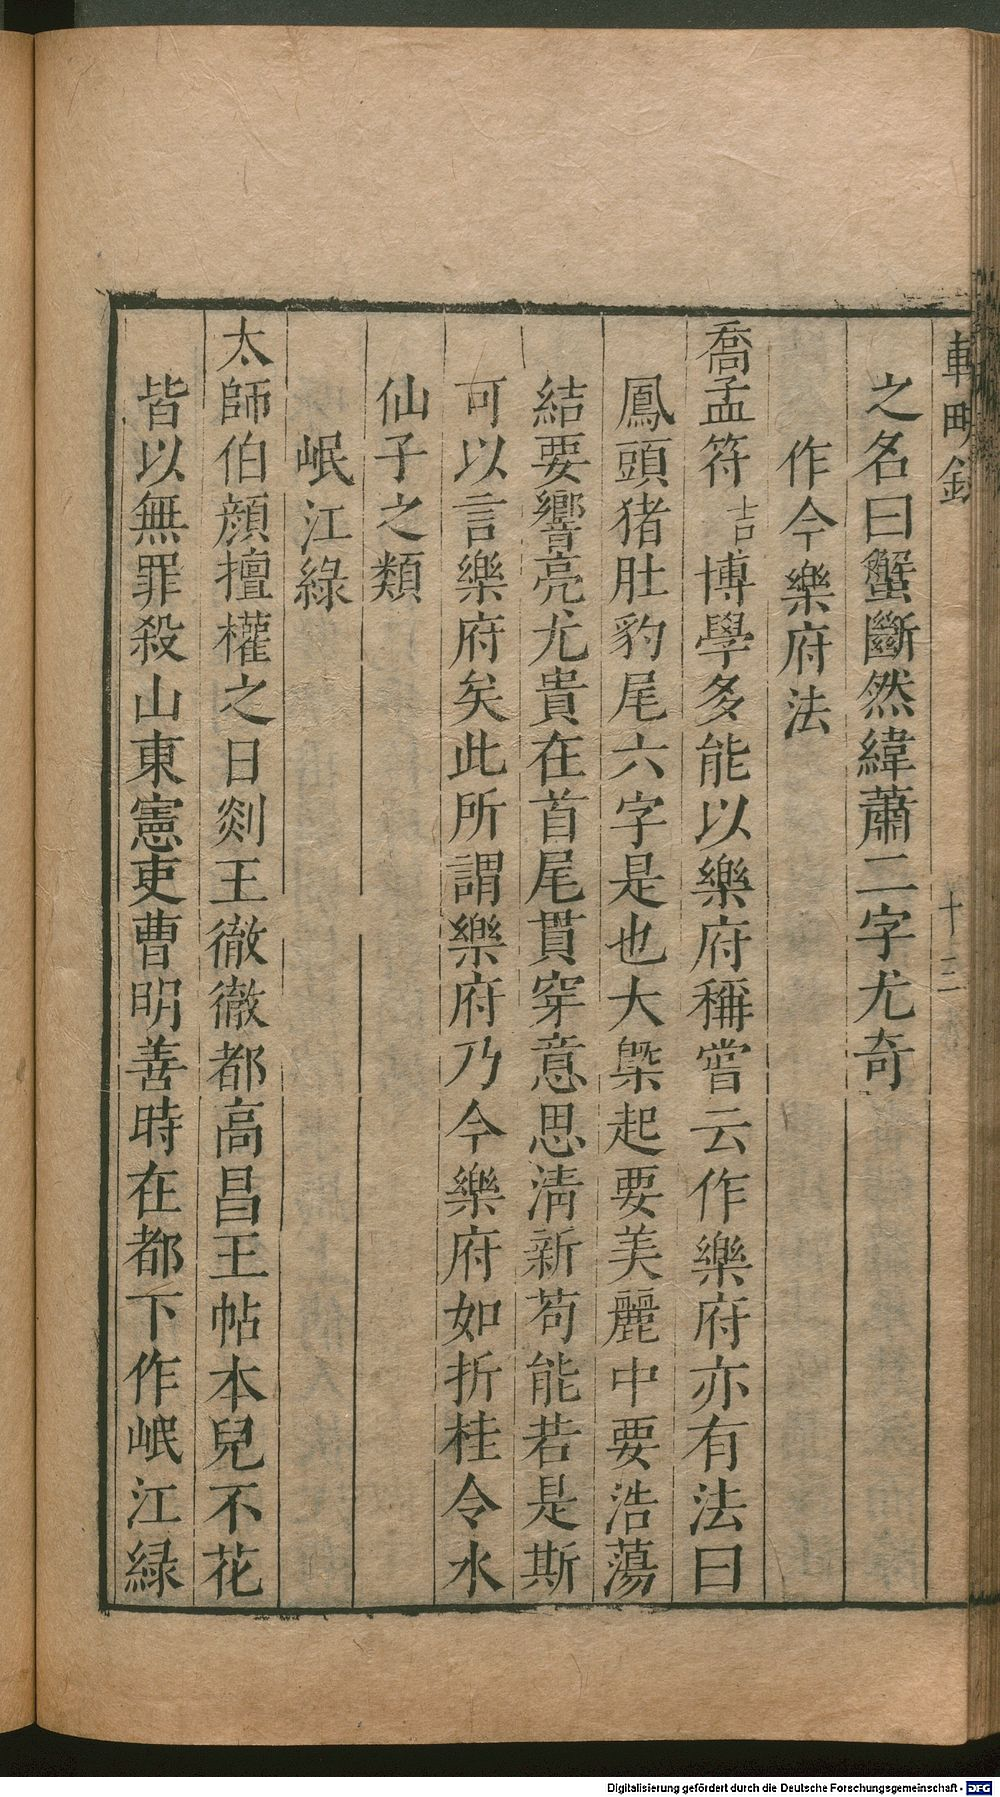 之名曰蟹斷然緯蕭二字尤奇
作今樂府法
喬孟符吉博學多能以樂府稱嘗云作樂府亦有法曰
鳳頭猪肚豹尾六字是也大槩起要美麗中要浩蕩
結要響亮尤貴在首尾貫穿意思清新苟能若是斯
可以言樂府矣此所謂樂府乃今樂府如折桂令水
仙子之類
岷江綠
太師伯顔擅權之日剡王徹徹都高昌王帖木兒不花
皆以無罪殺山東憲吏曹明善時在都下作岷江緑
十三
Digitalisierung gefördert durch die Deutsche Forschungsgemeinschaft - DFG